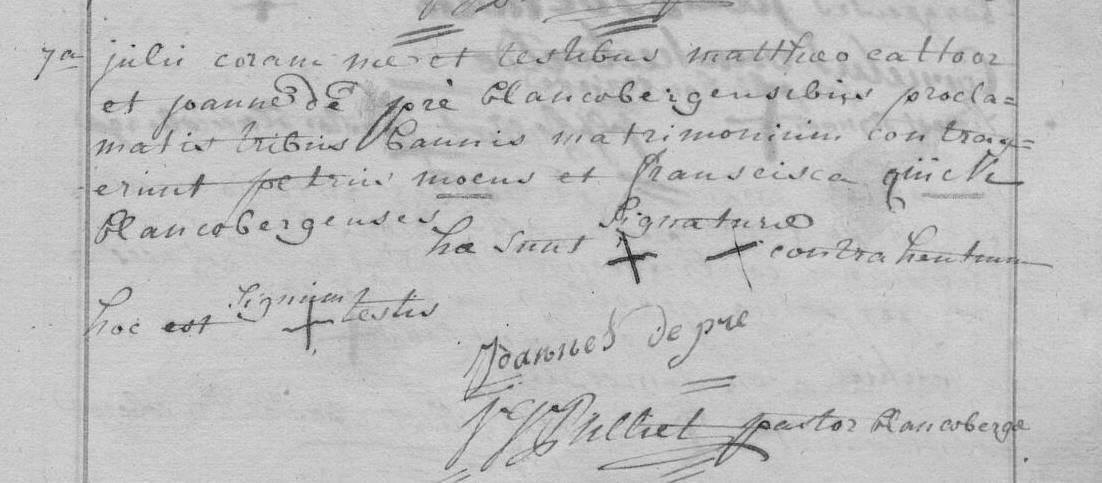 7a julii coram me et testibus mattheo cattoor
et joanne de pré blancobergensibus procla=
matis tribus bannis matrimonium contrax=
erunt petrus moens et franscisca
blancobergenses hæ sunt signaturæ + + contrahentium
hoc est signum + testis
Joannes de pre
pastor blancobergæ